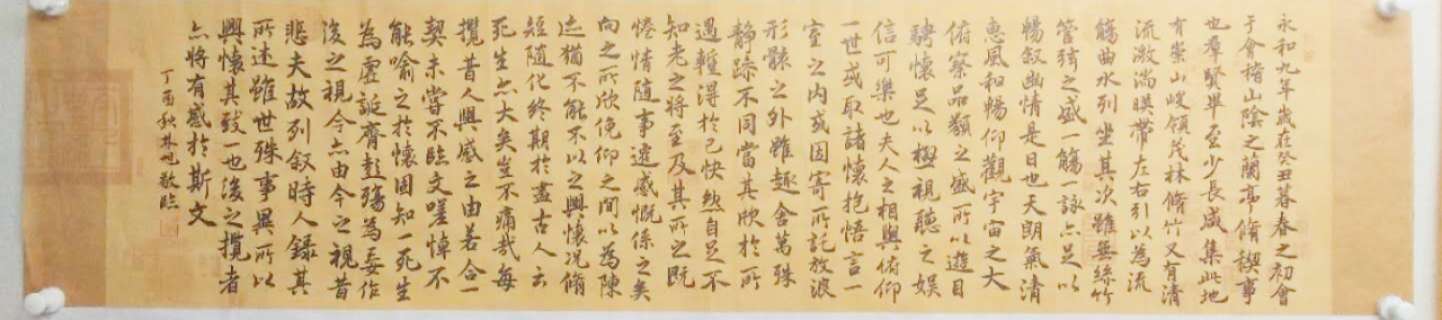 永和九年歲在癸丑暮春之初會
于會稽山陰之蘭亭脩稧事
也羣賢畢至少長咸集此地
有崇山峻領茂林脩竹又有清
流激湍暎帶左右引以為流
觴曲水列坐其次雖無絲竹
管弦之盛一觴一詠亦足以
暢叙幽情是日也天朗氣清
惠風和暢仰觀宇宙之大
俯察品類之盛所以遊目
騁懷足以極視聽之娛
信可樂也夫人之相與俯仰
一世或取諸懷抱悟言一
室之內或因寄所託放浪
形骸之外雖趣舍萬殊
靜躁不同當其欣於所
遇蹔得於己快然自足不
知老之將至及其所之既
惓情隨事遷感慨係之矣
向之所欣俛仰之間以為陳
迹猶不能不以之興懷況脩
短隨化終期於盡古人云
死生亦大矣豈不痛哉每
攬昔人興感之由若合一
契未嘗不臨文嗟悼不
能喻之於懷固知一死生
為虛誕齊彭殤為妄作
後之視今亦由今之視昔
悲夫故列叙時人錄其
所述雖世殊事異所以
興懷其致一也後之攬者
亦將有感於斯文
丁酉秋林敬臨